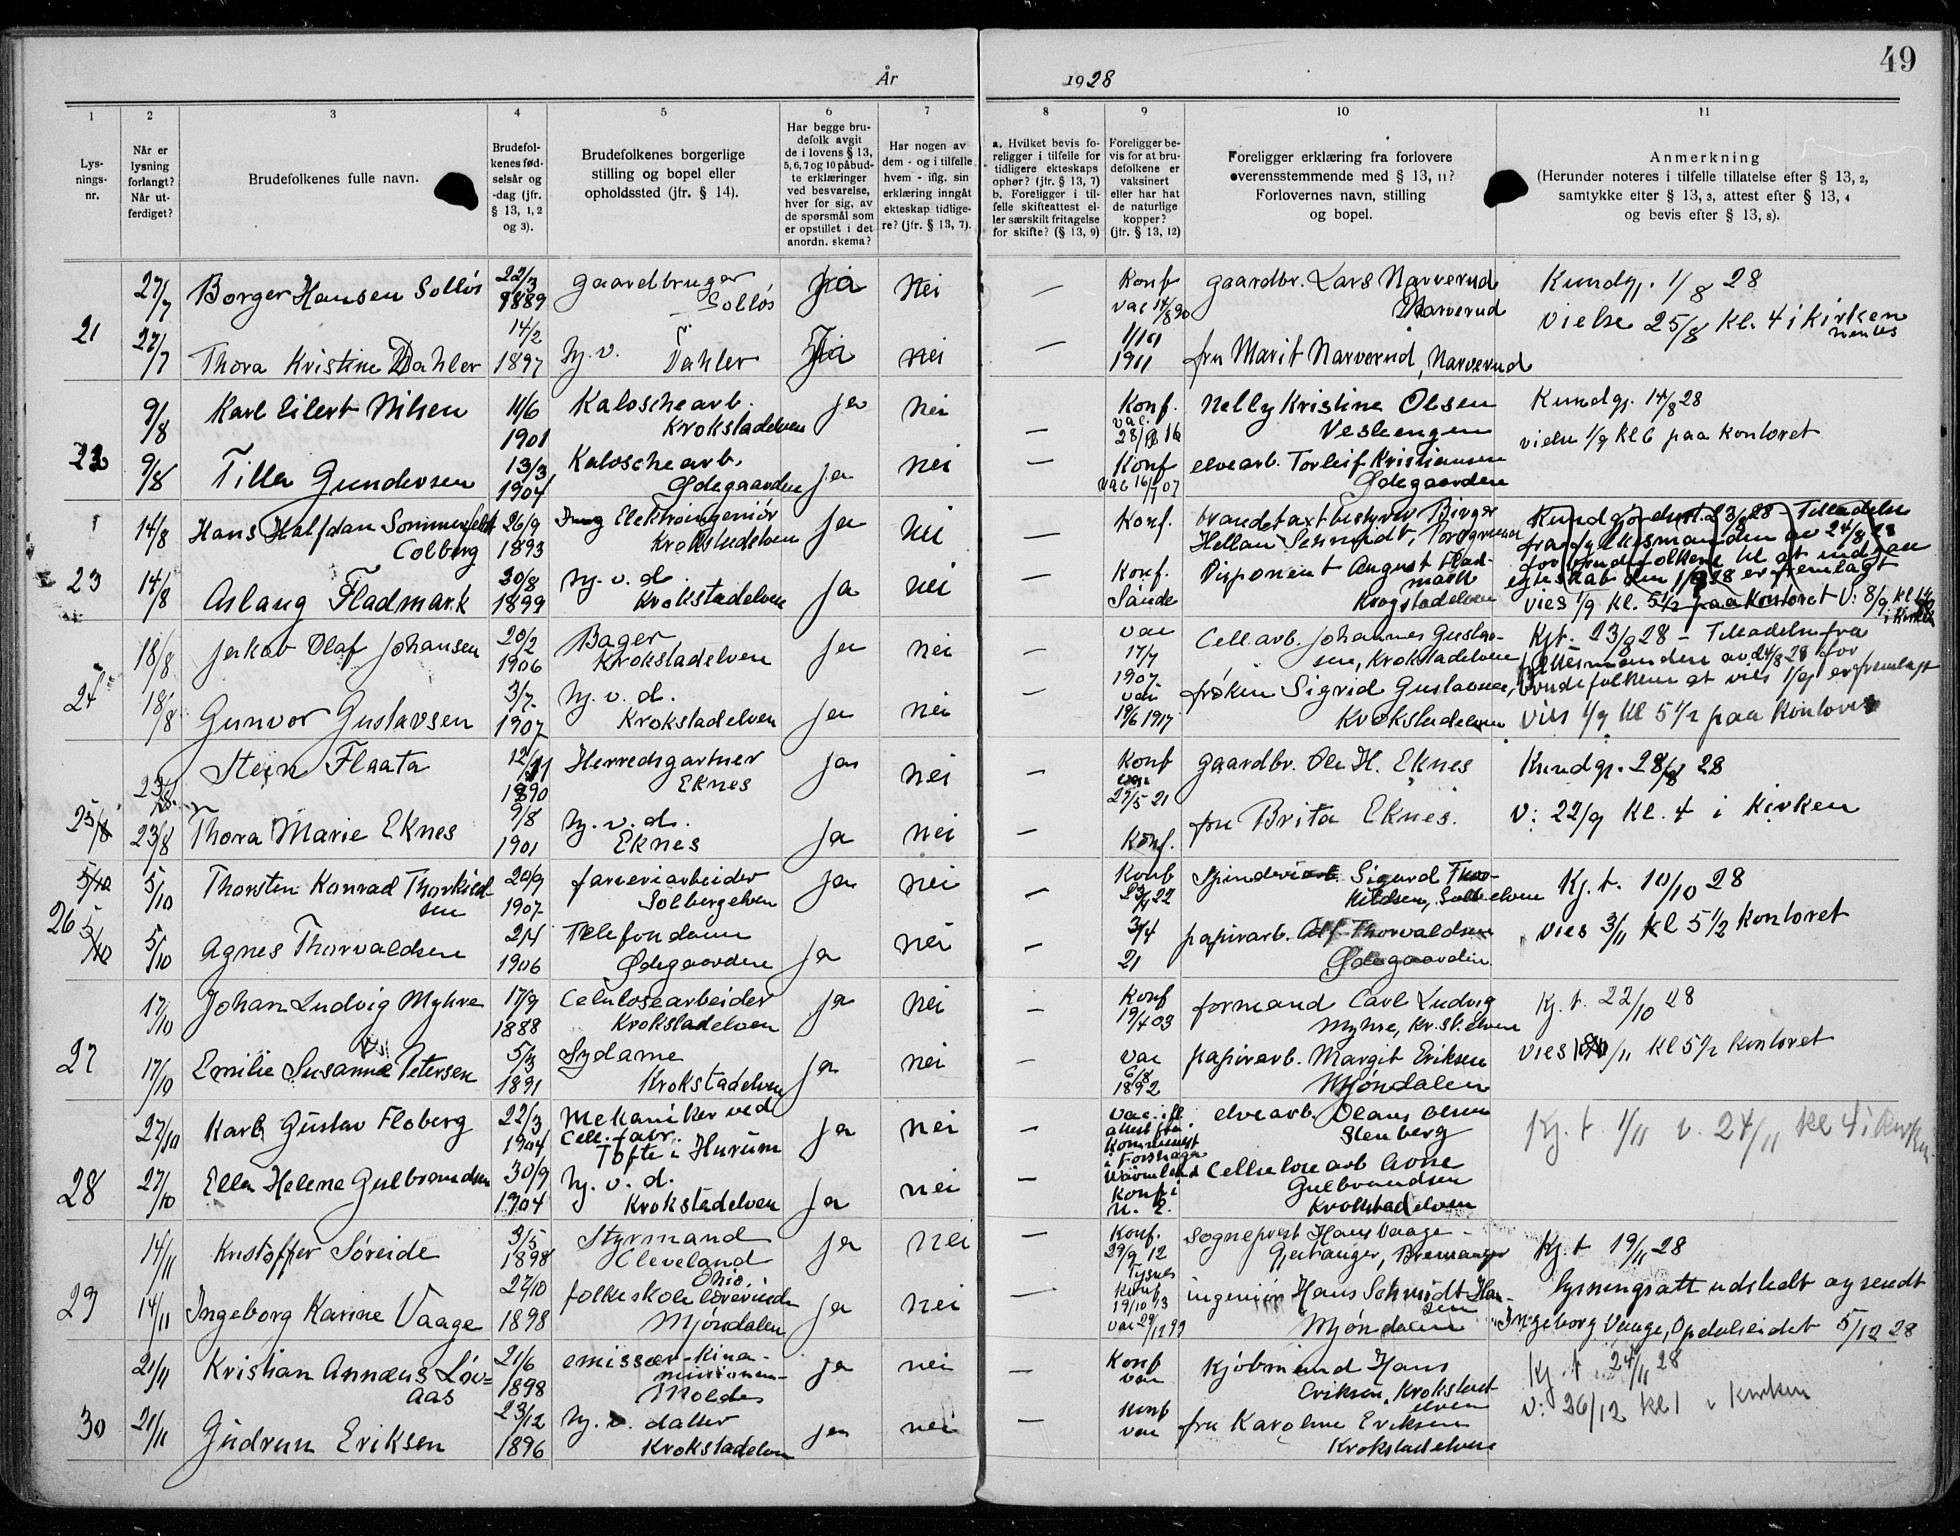 49
År 1928
1 2 3 4 5 6 7 8 9 10 11
Lys-
nings-
nr.
Når er
lysning
forlangt?
Når ut-
ferdiget?
Brudefolkenes fulle navn.
Brudefol-
kenes fød-
selsår og
-dag (jfr.
§ 13, 1, 2
og 3).
Brudefolkenes borgerlige
stilling og bopel eller
opholdssted (jfr. § 14).
Har begge bru-
defolk avgit
de i lovens § 13,
5, 6, 7 og 10 påbud-
te erklæringer
ved besvarelse,
hver for sig, av
de spørsmål som
er opstillet i det
anordn. skema?
Har nogen av
dem - og i tilfelle
hvem - iflg. sin
erklæring inngått
ekteskap tidlige-
re? (jfr. § 13, 7).
a. Hvilket bevis fo-
religger i tilfelle for
tidligere ekteskaps
ophør? (jfr. § 13, 7)
b. Foreligger i til-
felle skifteattest el-
ler særskilt fritagelse
for skifte? (§ 13, 9)
Foreligger be-
vis for at bru-
defolkene er
vaksinert
eller har hat
de naturlige
kopper?
(jfr. § 13, 12)
Foreligger erklæring fra forlovere
overensstemmende med § 13, 11?
Forlovernes navn, stilling
og bopel.
Anmerkning
(Herunder noteres i tilfelle tillatelse efter § 13, 2,
samtykke efter § 13, 3, attest efter § 13, 4
og bevis efter § 13, 8).
21
27/7 Borger Hansen Solløs 22/3 1889 gaardbruger Solløs ja nei — Konf vac 14/8 90 gaardbr. Lars Narverud Narverud Kundgj. 1/8 28
vielse 25/8 kl. 4 i kirken
27/7 Thora Kristine Dahler 14/2 1897 hj. v. Dahler Ja nei — 1911 fru Marit Narverud, Narverud
22
9/8 Karl Eilert Nilsen 11/6 1901 Kaloschearb. Krokstadelven ja nei — Konf. vac. Nelly Kristine Olsen Vesleengen Kundgj. 14/8 28
vielse 1/9 kl 6 paa kontoret
9/8 Tilla Gundersen 13/3 1904 Kaloschearb. Ødegaarden ja nei — Konf vac 16/7 07 elvearb. Torleif Kristiansen Ødegaarden
23
14/8 Hans Halfdan Sommerfeldt Colberg 26/9 1893 Elektroingeniør Krokstadelven ja nei — Konf. branddtaxtbestyrer Birger Hellan Schmidt,
Kundgjordt 23/8 28 - Tilladelse
fra fylkesmanden av 24/8 28
for brudefolkene til at indgaa
egteskab den 1/9 28 er fremlagt
vies 1/9 kl. 5 1/2 paa kontoret V: 8/9 kl
i kirken
14/8 Aslaug Fladmark 30/8 1899 hj. v. d Krokstadelven ja nei — Konf. Sande Disponent August Fladmark Krogstadelven
24
18/8 Jakob Olaf Johansen 20/2 1906 Bager Krokstadelven ja nei — vac 17/7 1907 Cell arb. Johannes Gustavsen, Krokstadelven
Kjt. 23/8 28 - Tilladelse fra
fylkesmanden av 24/8 28 for
brudefolkene at vies 1/9 er fremlagt
vies 1/9 kl 5 1/2 paa kontoret
18/8 Gunvor Gustavsen 3/7 1907 hj. v. d. Krokstadelven ja nei — vac 19/6 1917 frøken Sigrid Gustavsen, Krokstadelven
25
23/8 Stein Flaata 12/11 1890 Herredsgartner Eknes ja nei — Konf 27/5 21 gaardbr. Ole H. Eknes Kundgj. 28/8 28
V: 22/9 kl. 4 i kirken
23/8 Thora Marie Eknes 9/8 1901 hj. v. d. Eknes ja nei — Konf. fru Brita Eknes.
26
5/10 Thorsten Konrad Thorkildsen 20/9 1907 farveriarbeider Solbergelven ja nei — Konf Spinderiarb. Sigurd Thorkildsen, Solb.elven Kj. t. 10/10 28
vies 3/11 kl 5 1/2 kontoret
5/10 Agnes Thorvaldsen 2/4 1906 Telefondame Ødegaarden ja nei — 3/4 21 papirarb. Alf Thorvaldsen Ødegaarden
27
17/10 Johan Ludvig Myhre 17/9 1888 Celulosearbeider Krokstadelven ja nei — Konf 19/4 03 formand Carl Ludvig Myhre, Kr.st.elven Kj. t. 22/10 28
vies /11 kl 5 1/2 kontoret
17/10 Emilie Susanna Petersen 5/3 1891 Sydame Krokstadelven ja nei — vac 6/8 1892 papirarb. Margit Eriksen Mjøndalen
28
27/10 Karl Gustav Floberg 22/3 1904 Mekaniker ved Cell. fabr. Tofte i Hurum ja nei — vac. ifl attest fra elvearb. Olaus Olsen Stenberg Kj. t 1/11 v. 24/11 kl 4 i kirken
27/10 Ella Helene Gulbrandsen 30/9 1904 hj. v. d. Krokstadelven ja nei — Konf i N. E. Cellulosearb Arne Gulbrandsen Krokstadelven
29
14/11 Kristoffer Søreide 3/5 1898 Styrmand Cleveland Ohio ja nei — Konf. 29/9 12 Tysnes Sogneprest Hans Vaage Bremanger Kj. t 19/11 28
lysningsatt udstedt og sendt
Ingeborg Vaage, Opdalseidet 5/12 28
14/11 Ingeborg Karine Vaage 27/10 1898 folkeskolelærerinde Mjøndalen ja nei — Konf 19/10 13 vac 29/12 99 ingeniør Hans Schmidt Hansen Mjøndalen
30
21/11 Kristian Annæus Løvaas 21/6 1898 emissær Kinamissionen Molde ja nei — Konf vac Kjøbmand Hans Eriksen, Krokstadelven Kj. t 24/11 28
v: 26/12 kl 1 i kirken
21/11 Gudrun Eriksen 23/12 1896 hj. v. datter Krokstadelven ja nei — Konf vac fru Karoline Eriksen Krokstadelven